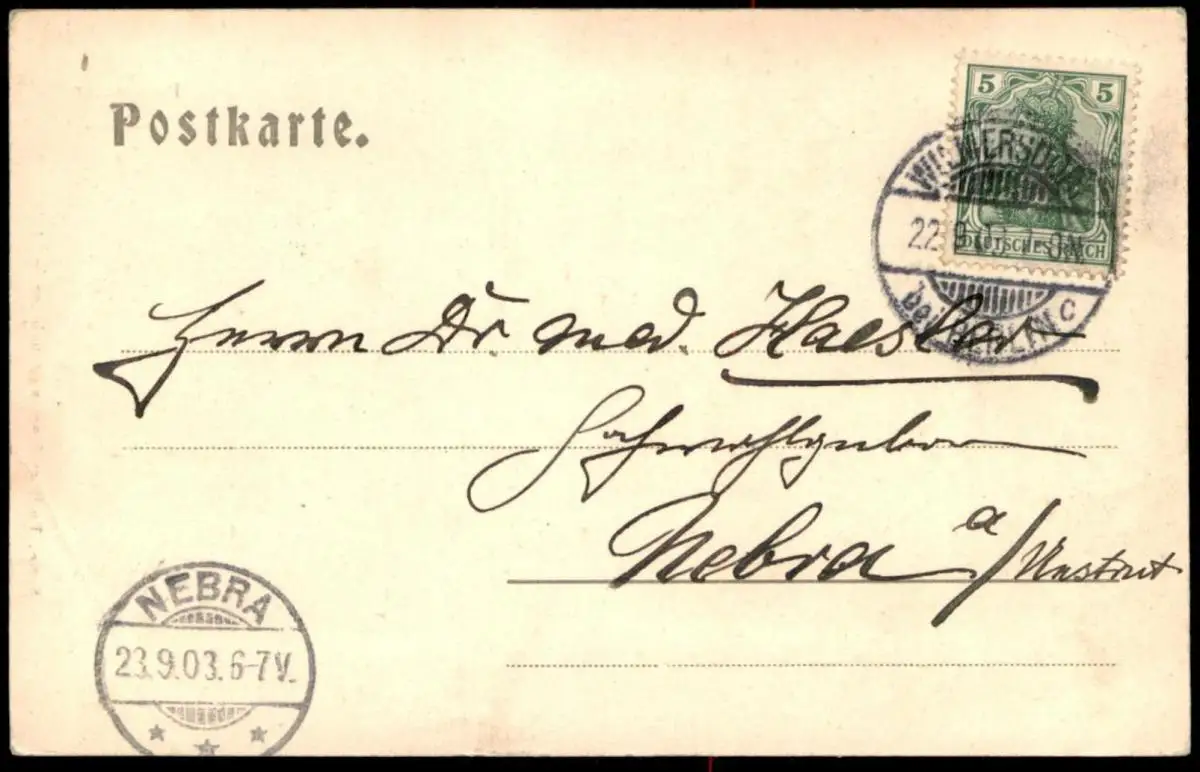 Postkarte.
5 5
DEUTSCHES REICH
WILMERSDORF
22.9.03
bei BERLIN C
Herrn Dr. med. Haesler
Hochwohlgeboren
Nebra a/Unstrut
NEBRA
23.9.03.6-7V.